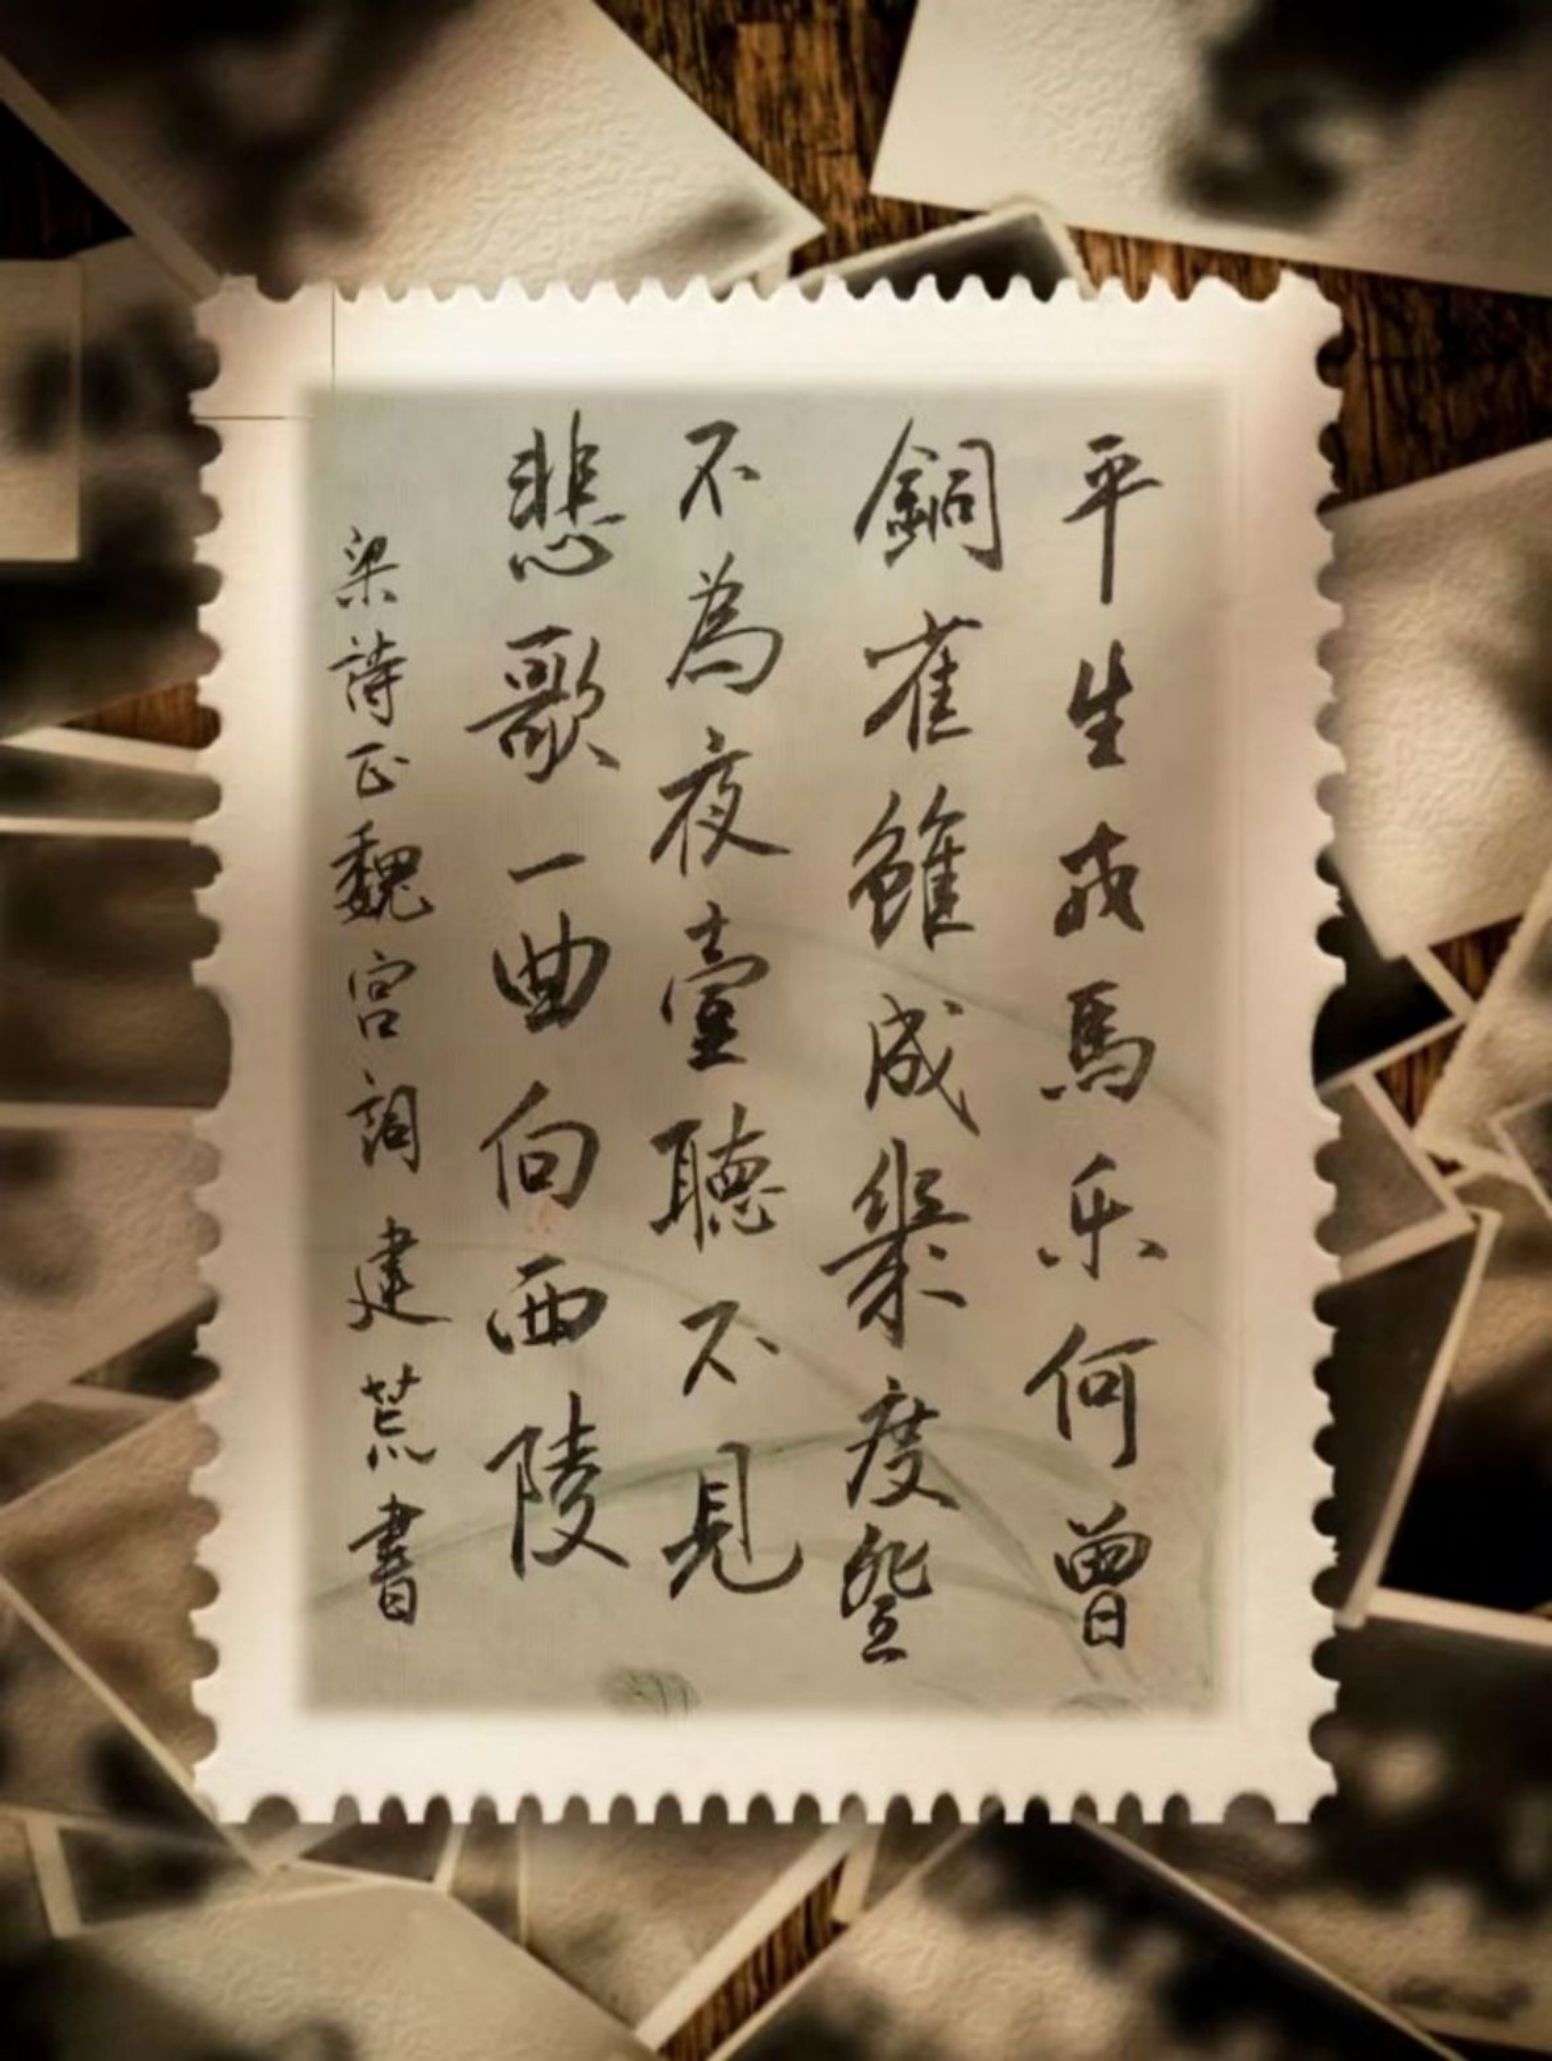 平生戎馬乐何曾
銅雀雖成幾度登
不為夜臺聽不見
悲歌一曲向西陵
梁詩正魏宮詞 建荒書